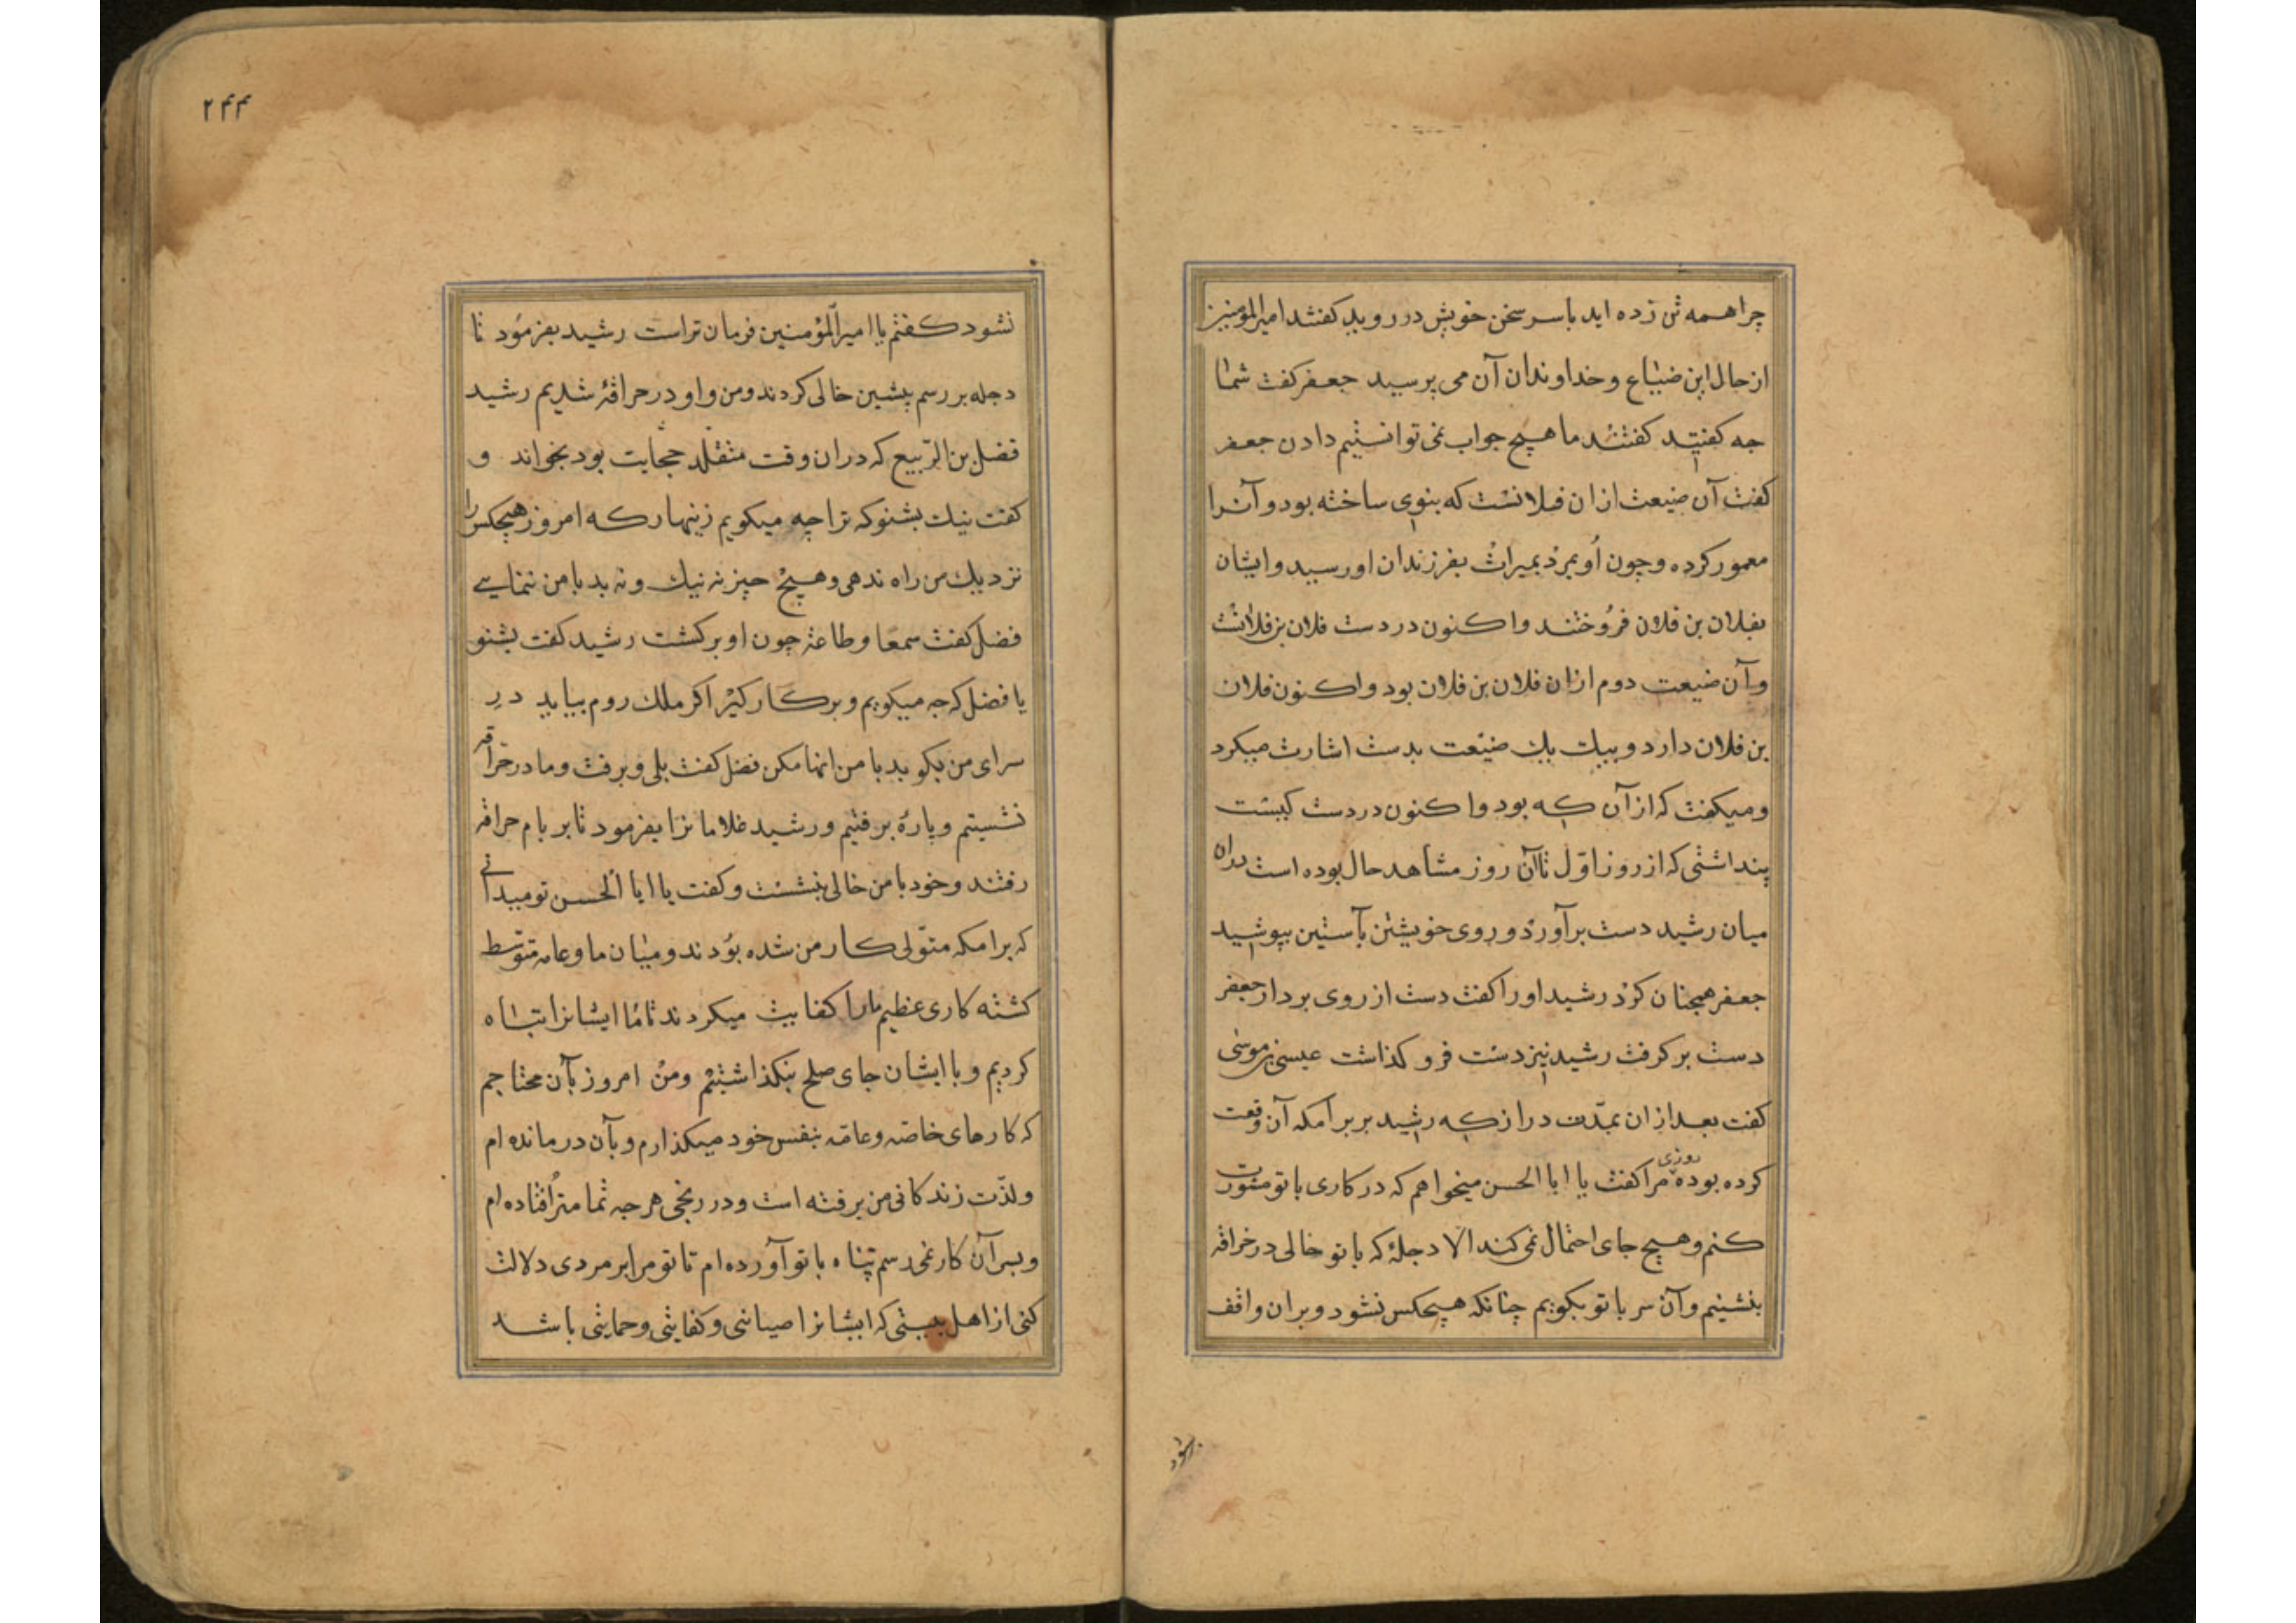 چرا همه تن زده اید باسر سخن خویش در روید کفتند امیرالمومنین
ازحال این ضیاع و خداوندان آن می پرسید جعفر کفت شما
جه کفتید کفتند ما هیچ جواب نمی توانستیم دادن جعفر
کفت آن ضیعت ازان فلانست که بنوی ساخته بود و آنرا
معمور کرده و جون اُو بمرد بمیراث بفرزندان اورسید و ایشان
بفلان بن فلان فرُوختند و اکنون در دست فلان بن فلانست
و آن ضیعت دوم ازان فلان بن فلان بود و اکنون فلان
بن فلان دارد و بیک بیک ضیعت بدست اشارت میکرد
ومیکفت که ازآن که بود وا کنون دردست کیست
پنداشتی که از روز اوّل تاآن روز مشاهد حال بوده است
میان رشید دست برآورد و روی خویشتن بآستین بپوشید
جعفر همجنان کرد رشید اورا کفت دست از روی بردار جعفر
دست بر کرفت رشید نیز دست فرو کذاشت عیسی بن موسی
کفت بعد ازان بمدّت دراز که رشید بر برامکه آن وقعت
کرده بوده روزی مرا کفت یا ابا الحسن میخواهم که در کاری باتو مشورت
کنم و هیچ جای احتمال نمی کند الا دجلهٔ که باتو خالی در حراقه
بنشینم وآن سر باتو بکویم چنانکه هیچکس نشود و بران واقف
نشود
۲۴۴
نشود کفتم یا امیرالمؤمنین فرمان تراست رشید بفرمود تا
دجله بر رسم پیشین خالی کردند ومن و او در حراقهٔ شدیم رشید
فضل بن الربیع که دران وقت متقلد حجابت بود بخواند و
کفت نیک بشنو که ترا چه میکویم زینهار که امروز هیچکس را
نزدیک من راه ندهی و هیچ چیز نه نیک و نه بد با من ننمایی
فضل کفت سمعًا وطاعة جون او برکشت رشید کفت بشنو
یا فضل که جه میکویم و بر کار کیر اکر ملک روم بیاید در
سرای من بکوبد با من انها مکن فضل کفت بلی و برفت وما در حراقه
نشستیم و پارهٔ برفتیم ورشید غلامانرا بفرمود تا بر بام حراقه
رفتند وخود با من خالی بنشست و کفت یا ابا الحسن تو میدانی
که برامکه متوّلی کار من شده بوُدند و میان ما و عامه متوسّط
کشته کاری عظیم مارا کفایت میکردند تا ما ایشانرا تباه
کردیم و با ایشان جای صلح بنکذاشتیم ومن امروز بآن محتاجم
که کارهای خاصّه وعامّه بنفس خود میکذارم و بآن درمانده ام
ولذّت زندکانی من برفته است و در رنجی هرجه تمامتر اُفتاده ام
وبسرآن کار نمی رسم پناه با تو آورده ام تا تو مرا بر مردی دلالت
کنی از اهل بیتی که ایشانرا صیانتی و کفایتی وحمایتی باشد